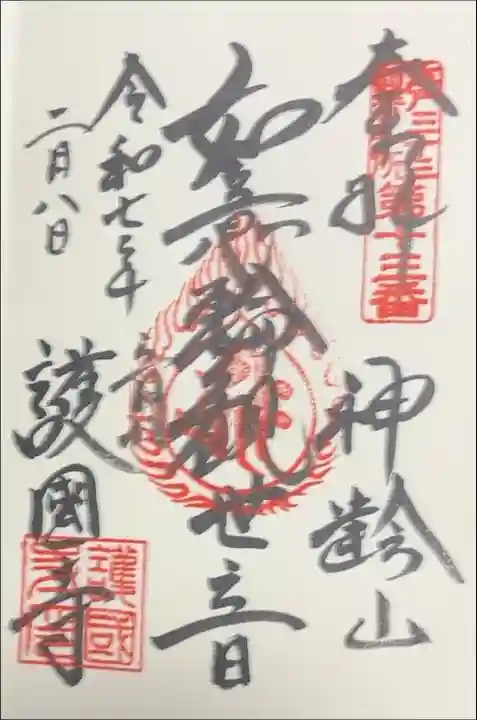 奉拝
神齢山
江戸三十三所第十三番
如意輪観世音
令和七年
二月八日
護國寺